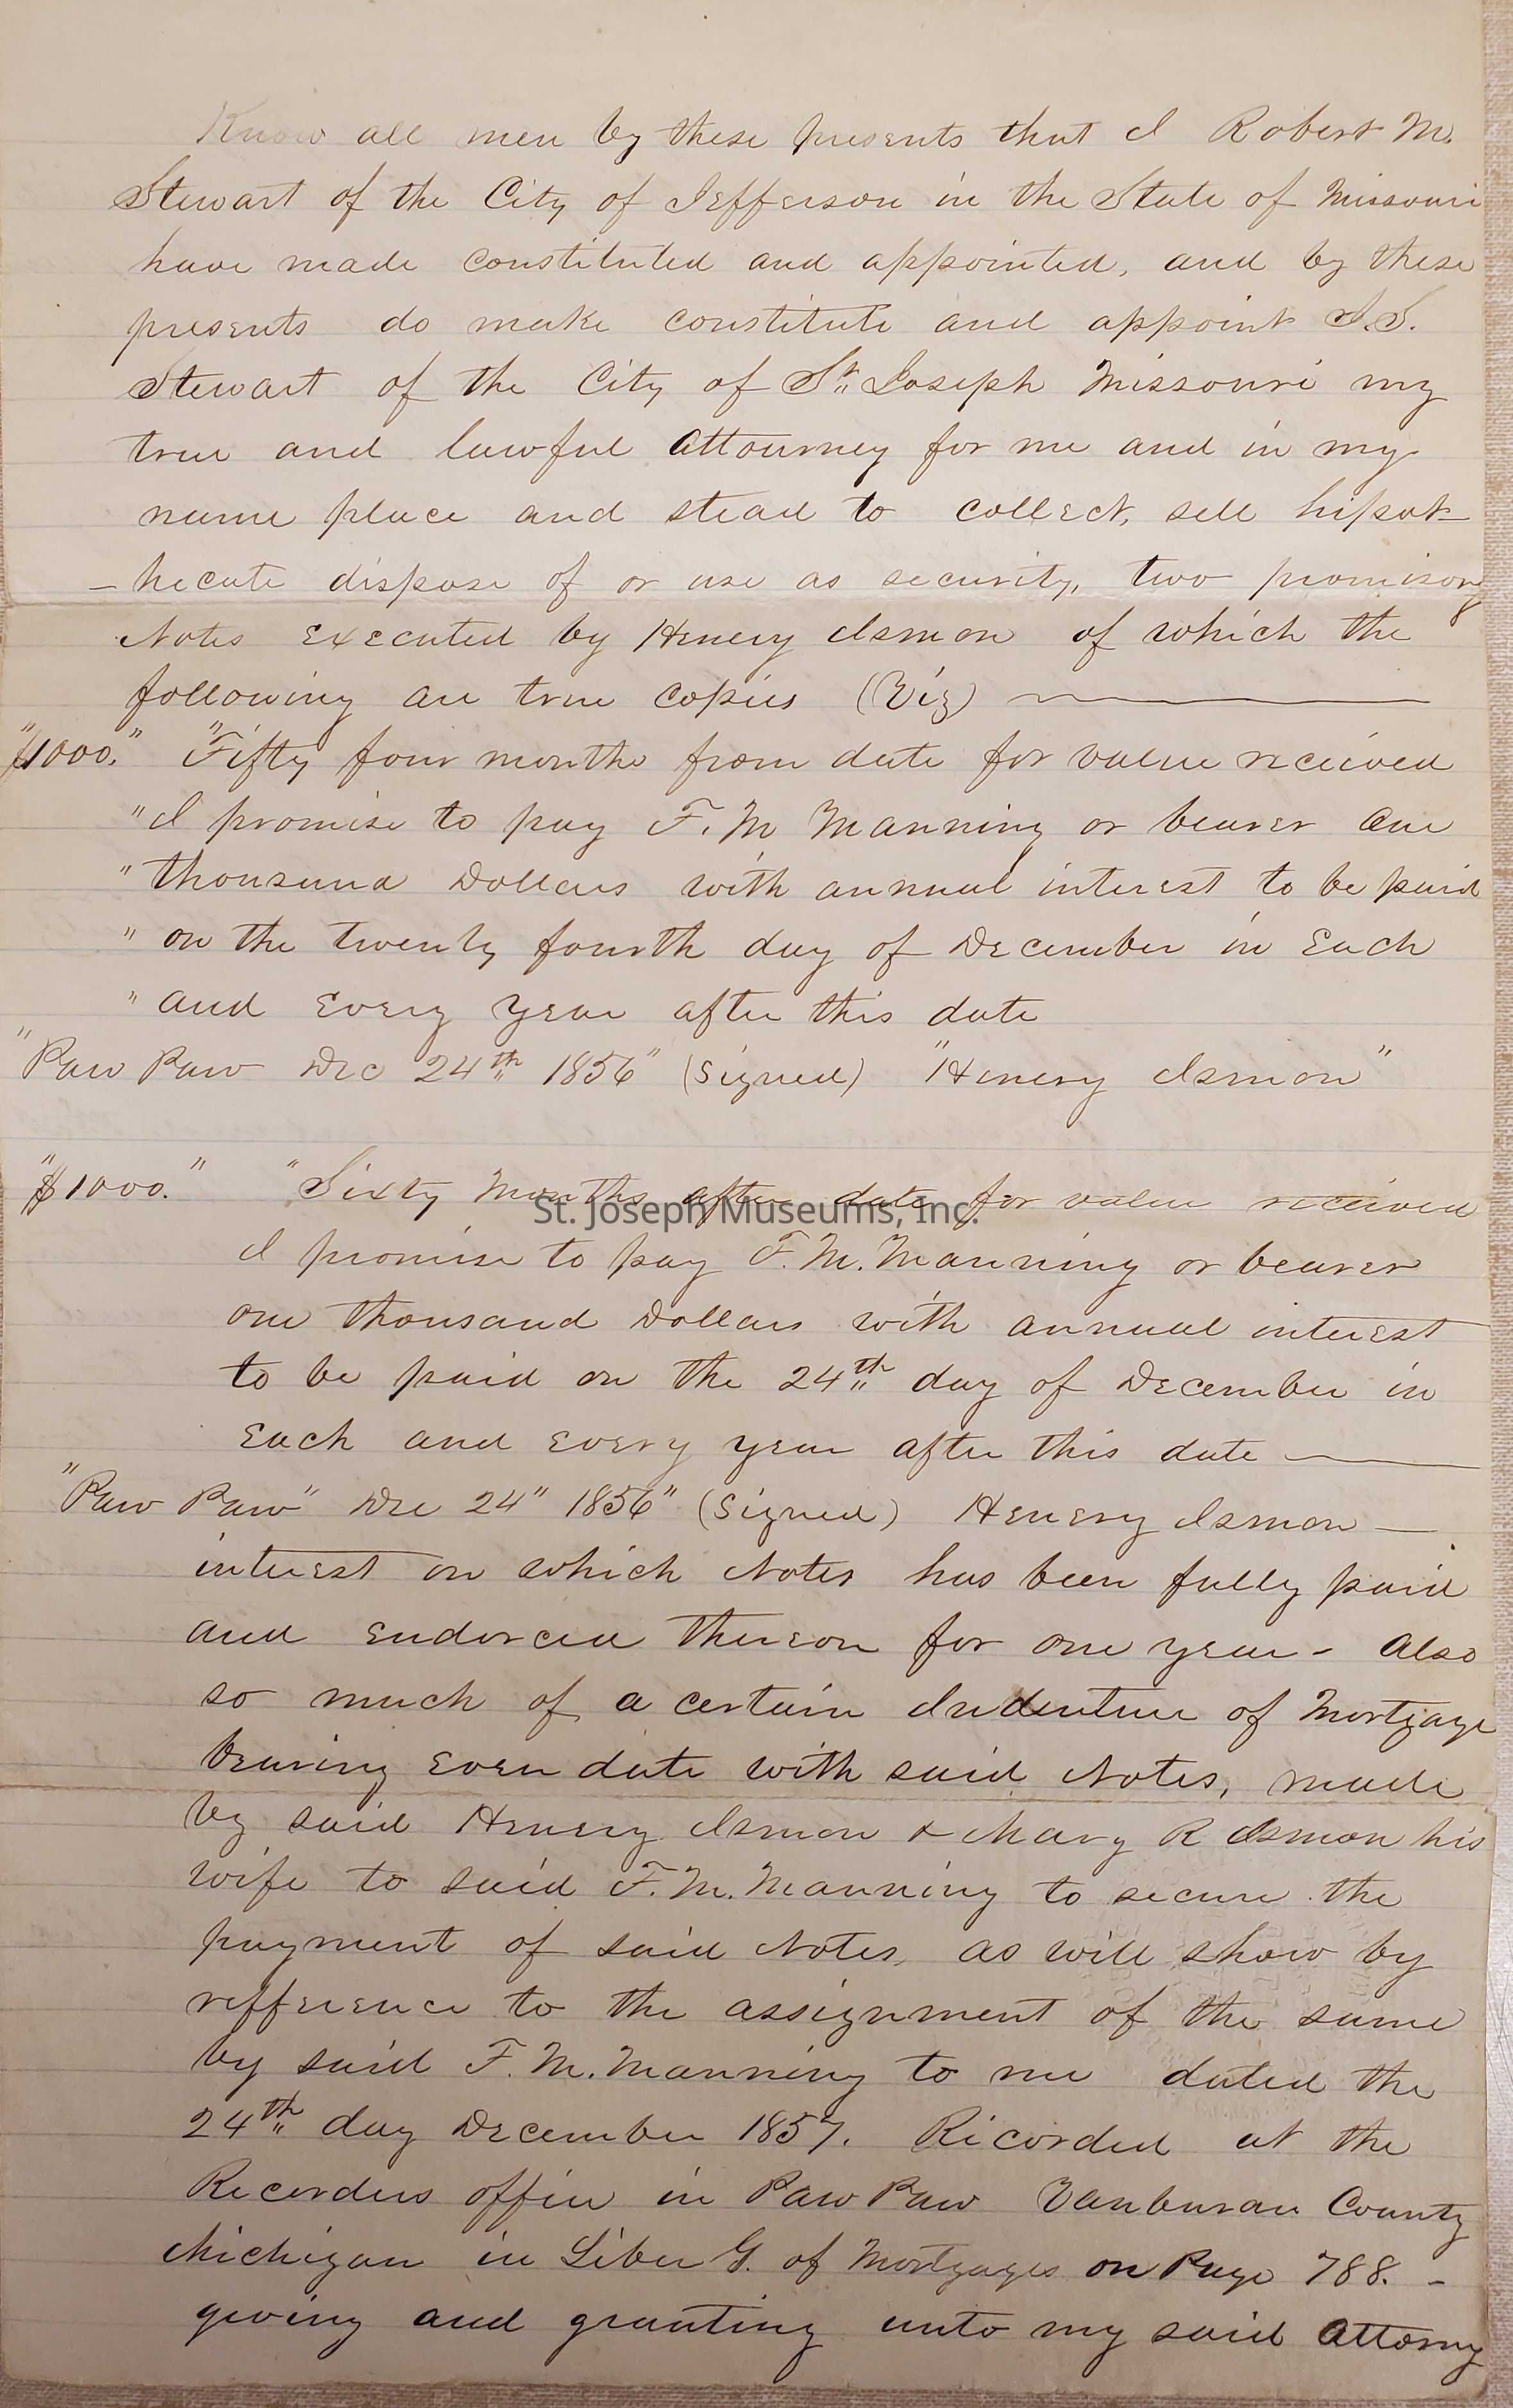 Know all men by these presents that I Robert M.
Stewart of the City of Jefferson in the State of Missouri
have made constituted and appointed, and by these
presents do make constitute and appoint
Stewart of the City of St. Joseph Missouri my
true and lawful Attourney for me and in my
name place and stead to collect, sell hipot-
-hecate dispose of or use as security, two promisory
Notes Executed by Henery Ismon of which the
following are true copies (Viz)
"$1000." "Fifty four months from date for value received
"I promise to pay F. M Manning or bearer One
"thousand Dollars with annual interest to be paid
"on the twenty fourth day of December in Each
"and Every year after this date
"Paw Paw Dec 24th 1856" (Signed) "Henery Ismon"
"$1000." "Sixty Months after date for value received
St. Joseph Museums, Inc.
I promise to pay F. M. Manning or bearer
one thousand Dollars with annual interest
to be paid on the 24th day of December in
Each and Every year after this date
"Paw Paw" Dec 24" 1856" (Signed) Henery Ismon —
interest on which Notes has been fully paid
and Endorced thereon for one year - Also
so much of a certain Indenture of Mortgage
bearing Even date with said Notes, made
by said Henery Ismon & Mary R Ismon his
wife to said F. M. Manning to secure the
payment of said Notes, as will show by
refference to the assignment of the same
by said F. M. Manning to me dated the
24th day December 1857. Recorded at the
Recorders office in Paw Paw Vanburan County
Michigan in Liber G. of Mortgages on Page 788. -
giving and granting unto my said Attorny